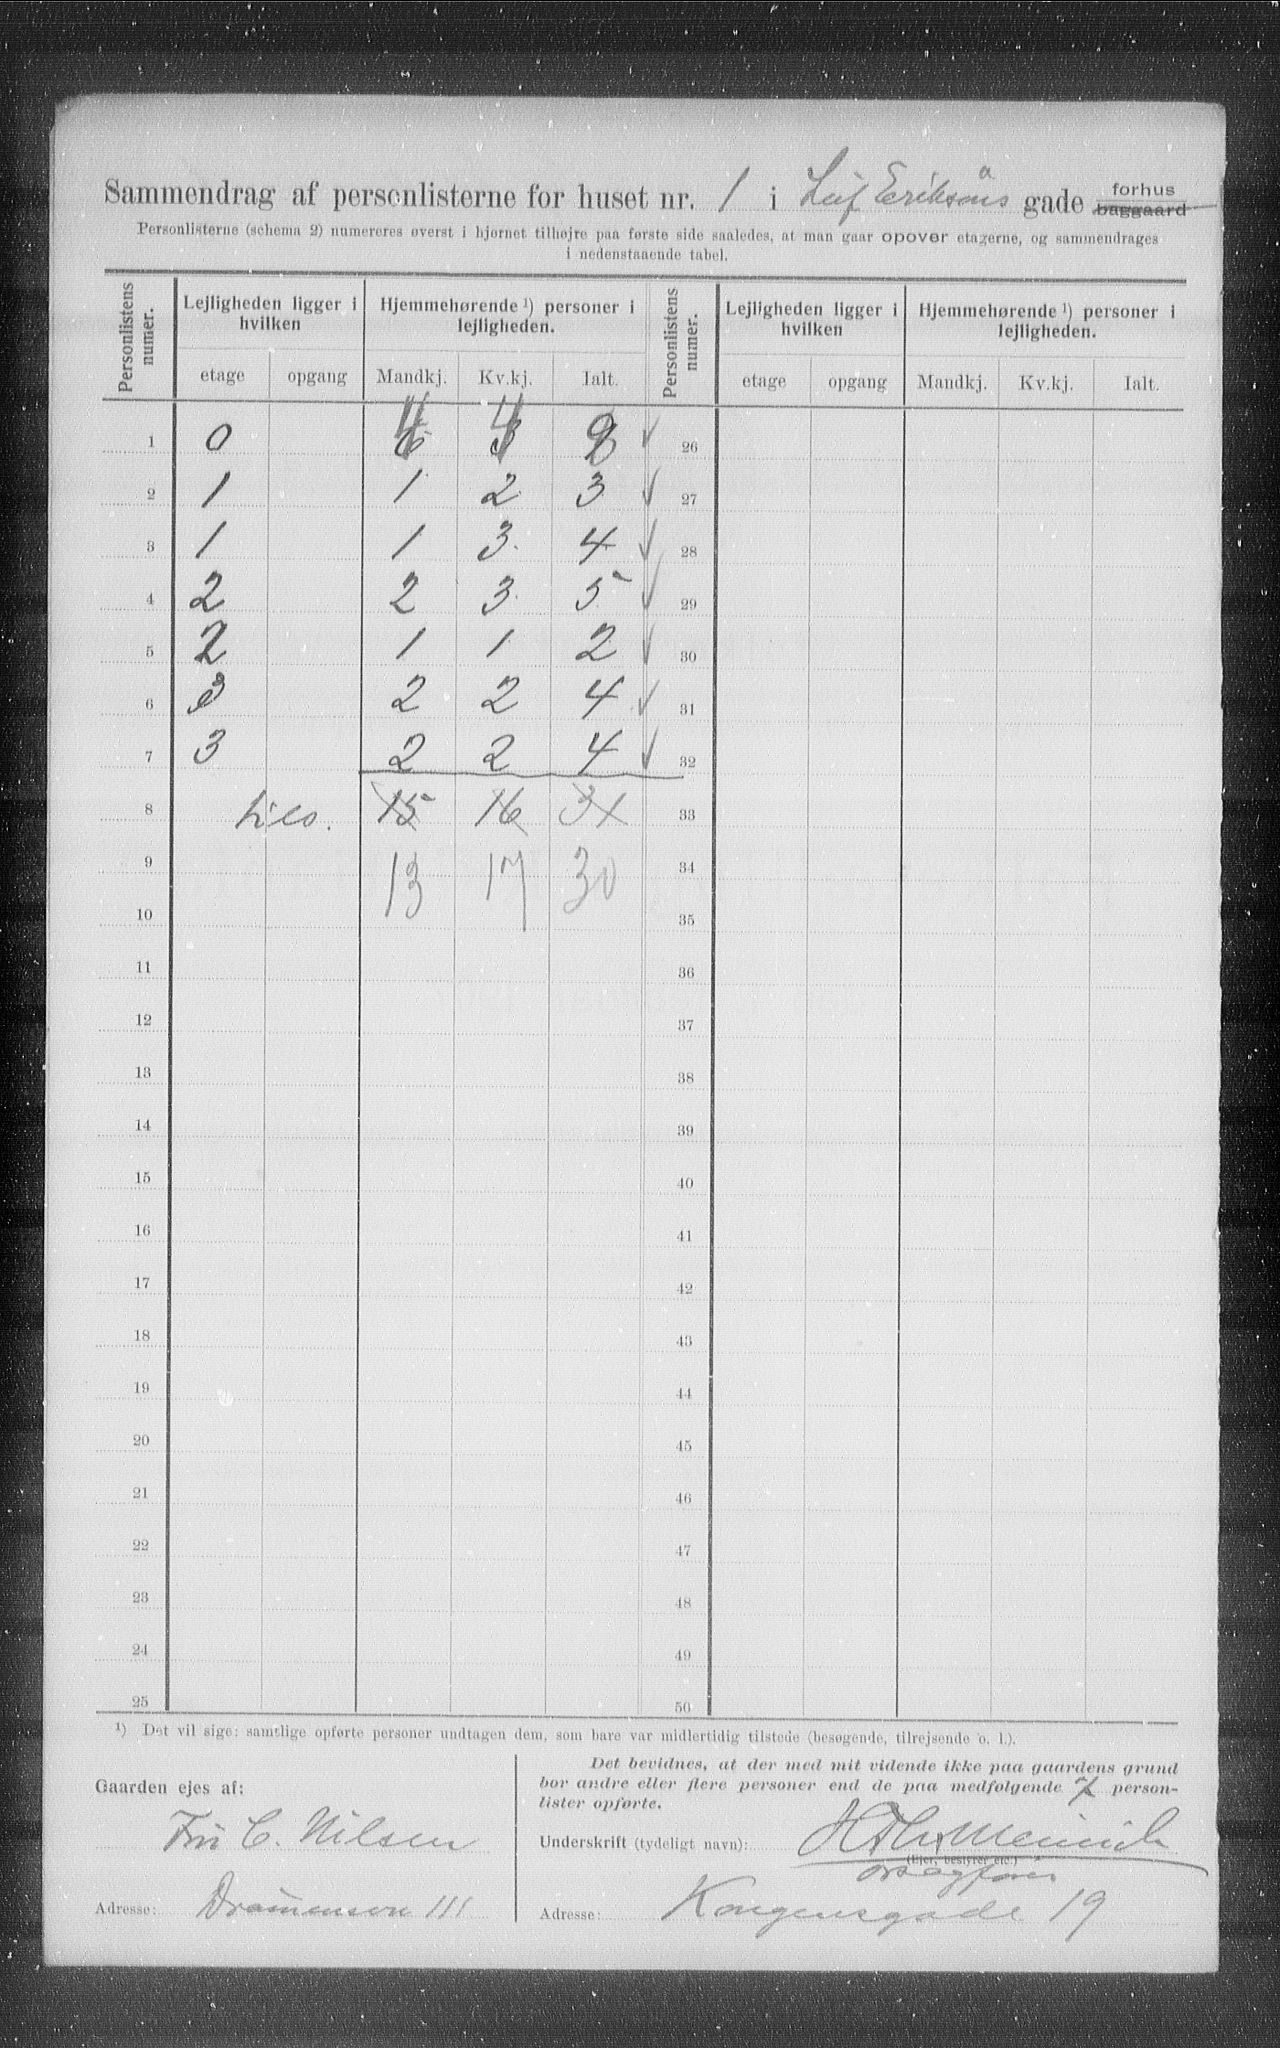 Sammendrag af personlisterne for huset nr. 1 i Leif Eriksøns gade forhus baggaard
Personlisterne (schema 2) numereres øverst i hjørnet tilhøjre paa første side saaledes, at man gaar opover etagerne, og sammendrages
i nedenstaaende tabel.
Personlistens numer. Lejligheden ligger i hvilken Hjemmehørende ¹) personer i lejligheden. Personlistens numer. Lejligheden ligger i hvilken Hjemmehørende ¹) personer i lejligheden.
etage opgang Mandkj. Kv.kj. Ialt. etage opgang Mandkj. Kv.kj. Ialt.
1 0 4 4 8 ✓ 26
2 1 1 2 3 ✓ 27
3 1 1 3 4 ✓ 28
4 2 2 3 5 ✓ 29
5 2 1 1 2 ✓ 30
6 3 2 2 4 ✓ 31
7 3 2 2 4 ✓ 32
8 tils. 15 16 31 33
9 13 17 30 34
10 35
11 36
12 37
13 38
14 39
15 40
16 41
17 42
18 43
19 44
20 45
21 46
22 47
23 48
24 49
25 50
¹) Det vil sige: samtlige opførte personer undtagen dem, som bare var midlertidig tilstede (besøgende, tilrejsende o. l.).
Gaarden ejes af:
Fru C. Nilsen
Adresse: Drammensvn 111
Det bevidnes, at der med mit vidende ikke paa gaardens grund
bor andre eller flere personer end de paa medfølgende 7 person-
lister opførte.
Underskrift (tydeligt navn):
(Ejer, bestyrer etc.)
Adresse: Kongensgade 19